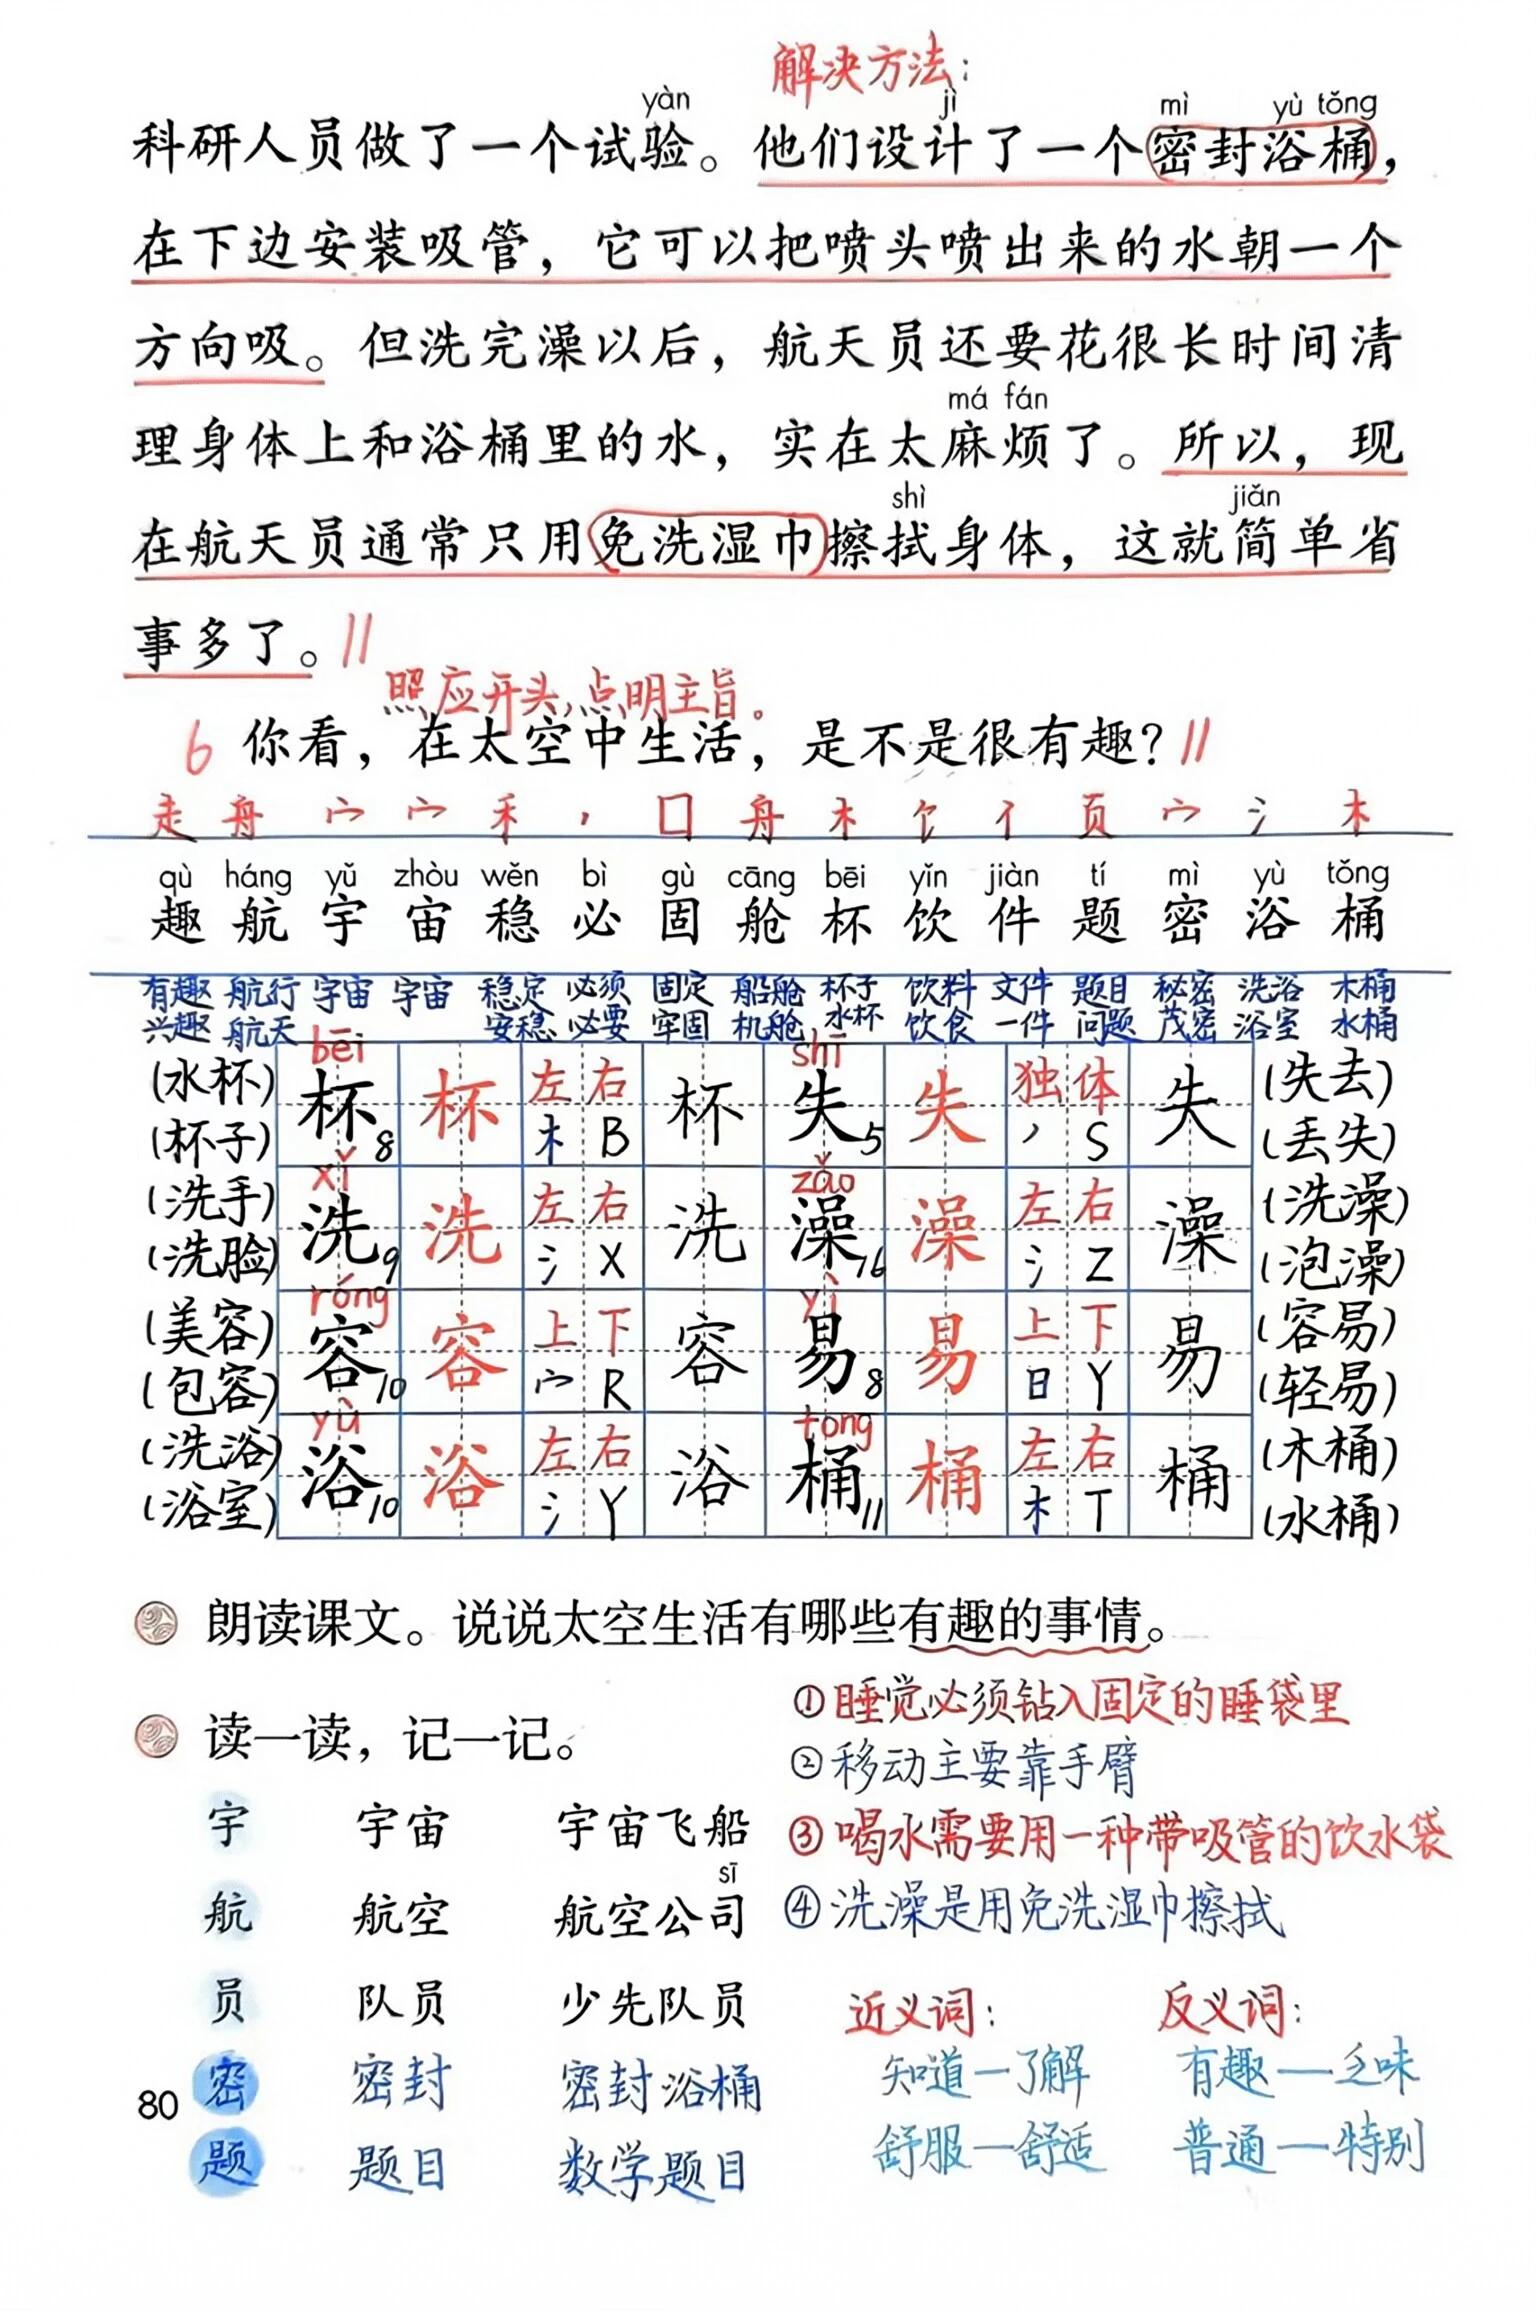 解决方法:
yàn jì mì yù tǒng
科研人员做了一个试验。他们设计了一个密封浴桶，
在下边安装吸管，它可以把喷头喷出来的水朝一个
方向吸。但洗完澡以后，航天员还要花很长时间清
má fán
理身体上和浴桶里的水，实在太麻烦了。所以，现
shì jiǎn
在航天员通常只用免洗湿巾擦拭身体，这就简单省
事多了。//
照应开头,点明主旨。
6 你看，在太空中生活，是不是很有趣？//
走 舟 宀 宀 禾 丶 囗 舟 木 饣 亻 页 宀 氵 木
qù háng yǔ zhòu wěn bì gù cāng bēi yǐn jiàn tí mì yù tǒng
趣 航 宇 宙 稳 必 固 舱 杯 饮 件 题 密 浴 桶
有趣 航行 宇宙 宇宙 稳定 必须 固定 船舱 杯子 饮料 文件 题目 秘密 洗浴 木桶
兴趣 航天 安稳 必要 牢固 机舱 水杯 饮食 一件 问题 茂密 浴室 水桶
bēi shī
(水杯) 杯 杯 左 右 杯 失 失 独 体 失 (失去)
(杯子) 8 木 B 5 丿 S (丢失)
xǐ zǎo
(洗手) 洗 洗 左 右 洗 澡 澡 左 右 澡 (洗澡)
(洗脸) 9 氵 X 16 氵 Z (泡澡)
róng yì
(美容) 容 容 上 下 容 易 易 上 下 易 (容易)
(包容) 10 宀 R 8 日 Y (轻易)
yù tong
(洗浴) 浴 浴 左 右 浴 桶 桶 左 右 桶 (木桶)
(浴室) 10 氵 Y 11 木 T (水桶)
朗读课文。说说太空生活有哪些有趣的事情。
①睡觉必须钻入固定的睡袋里
读一读，记一记。
②移动主要靠手臂
宇 宇宙 宇宙飞船
③喝水需要用一种带吸管的饮水袋
sī
航 航空 航空公司
④洗澡是用免洗湿巾擦拭
员 队员 少先队员
近义词: 反义词:
密 密封 密封浴桶
知道—了解 有趣—乏味
80
题 题目 数学题目
舒服—舒适 普通—特别